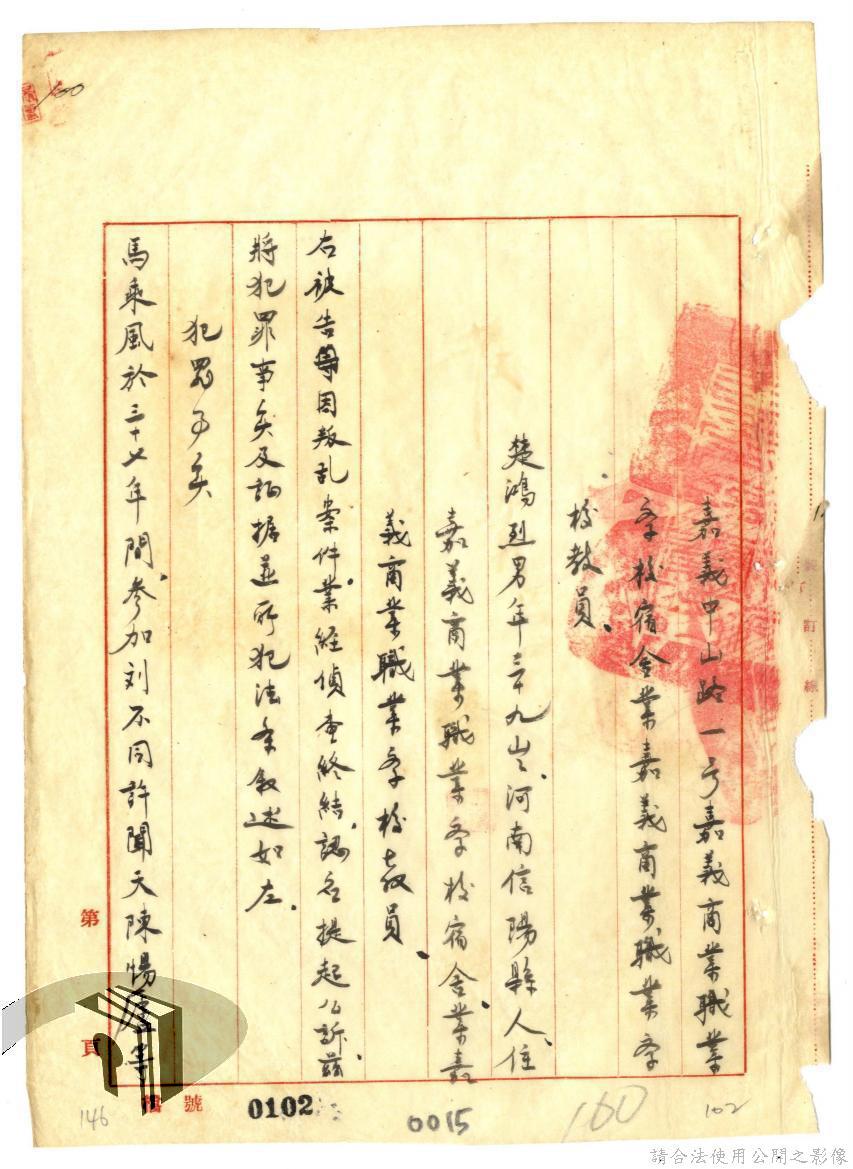 嘉義中山路一号嘉義商業職業
学校宿舍業嘉義商業職業学
校教員、
楚鴻烈男年三十九岁、河南信陽縣人、住
嘉義商業職業学校宿舍、業嘉
義商業職業学校教員、
右被告等因叛乱案件業経偵查終結、認应提起公訴、茲
將犯罪事实及証据並所犯法条敘述如左.
犯罪事实
馬乘風於三十七年間、参加刘不同許聞天陳惕廬等
第
頁
號
0102
0015
160
102
146
装訂線
請合法使用公開之影像